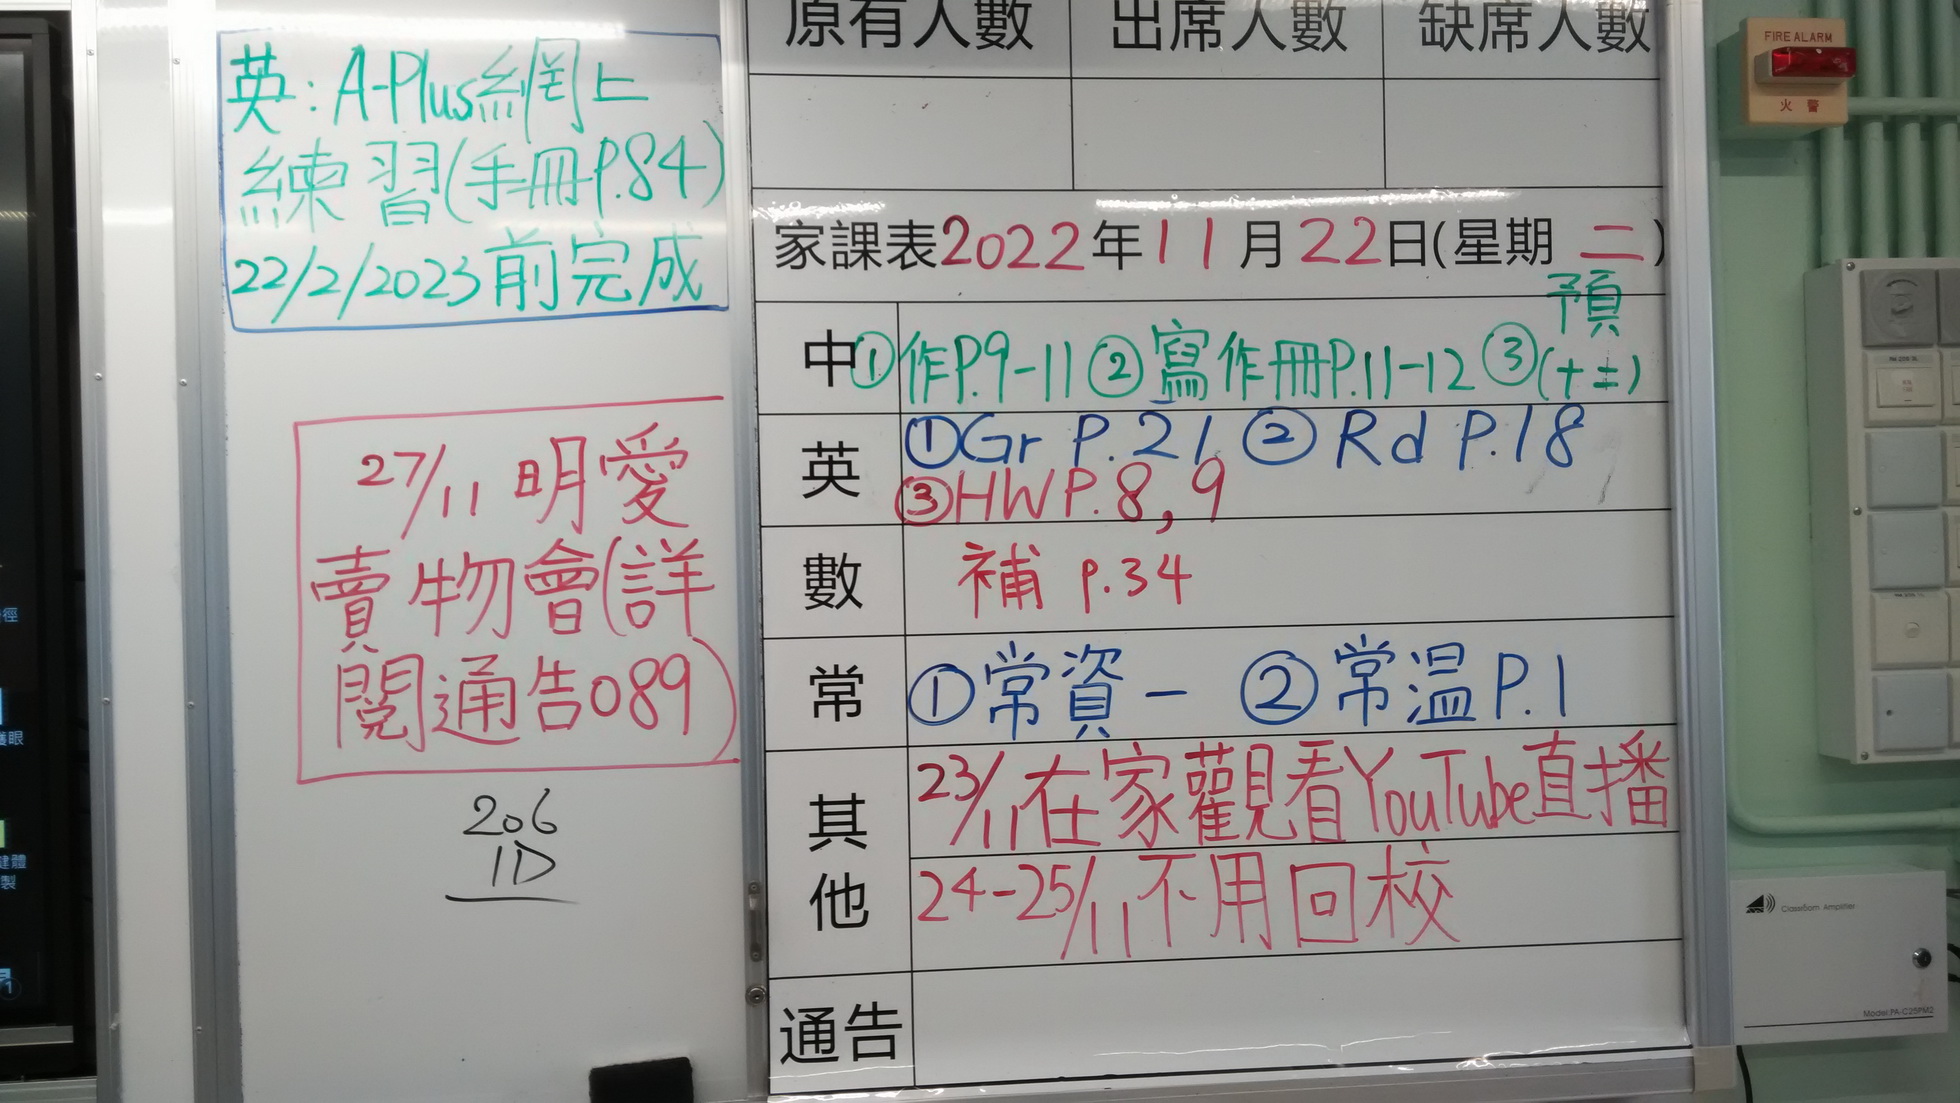 英:A-Plus網上
練習(手冊P.84)
22/2/2023前完成
27/11 明愛
賣物會(詳
閱通告089)
206
1D
原有人數 出席人數 缺席人數
家課表2022年11月22日(星期二)
預
中 ①作P.9-11 ②寫作冊P.11-12 ③(十二)
英 ①Gr P.21 ②Rd P.18
③HW P.8,9
數 補 p.34
常 ①常資一 ②常温P.1
其他
23/11在家觀看YouTube直播
24-25/11不用回校
通告
FIRE ALARM
火警
Classroom Amplifier
Model:PA-C25PM2
護眼
健體